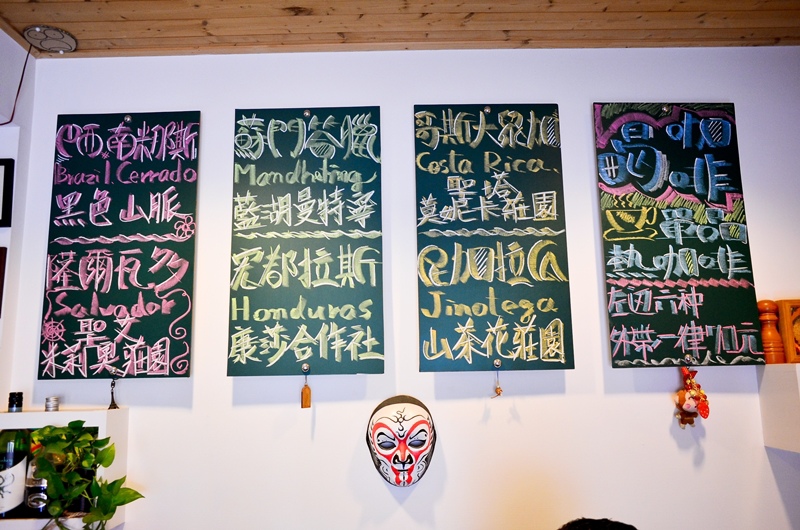 巴西南米那斯
Brazil Cerrado
黑色山脈
薩爾瓦多
Salvador
聖文
朱莉果莊園
蘇門答臘
Mandheling
藍湖曼特寧
宏都拉斯
Honduras
康莎合作社
哥斯大黎加
Costa Rica.
聖塔
莫妮卡莊園
尼加拉瓜
Jinotega
山茶花莊園
喝咖啡
單品
熱咖啡
左边六种
一律70元